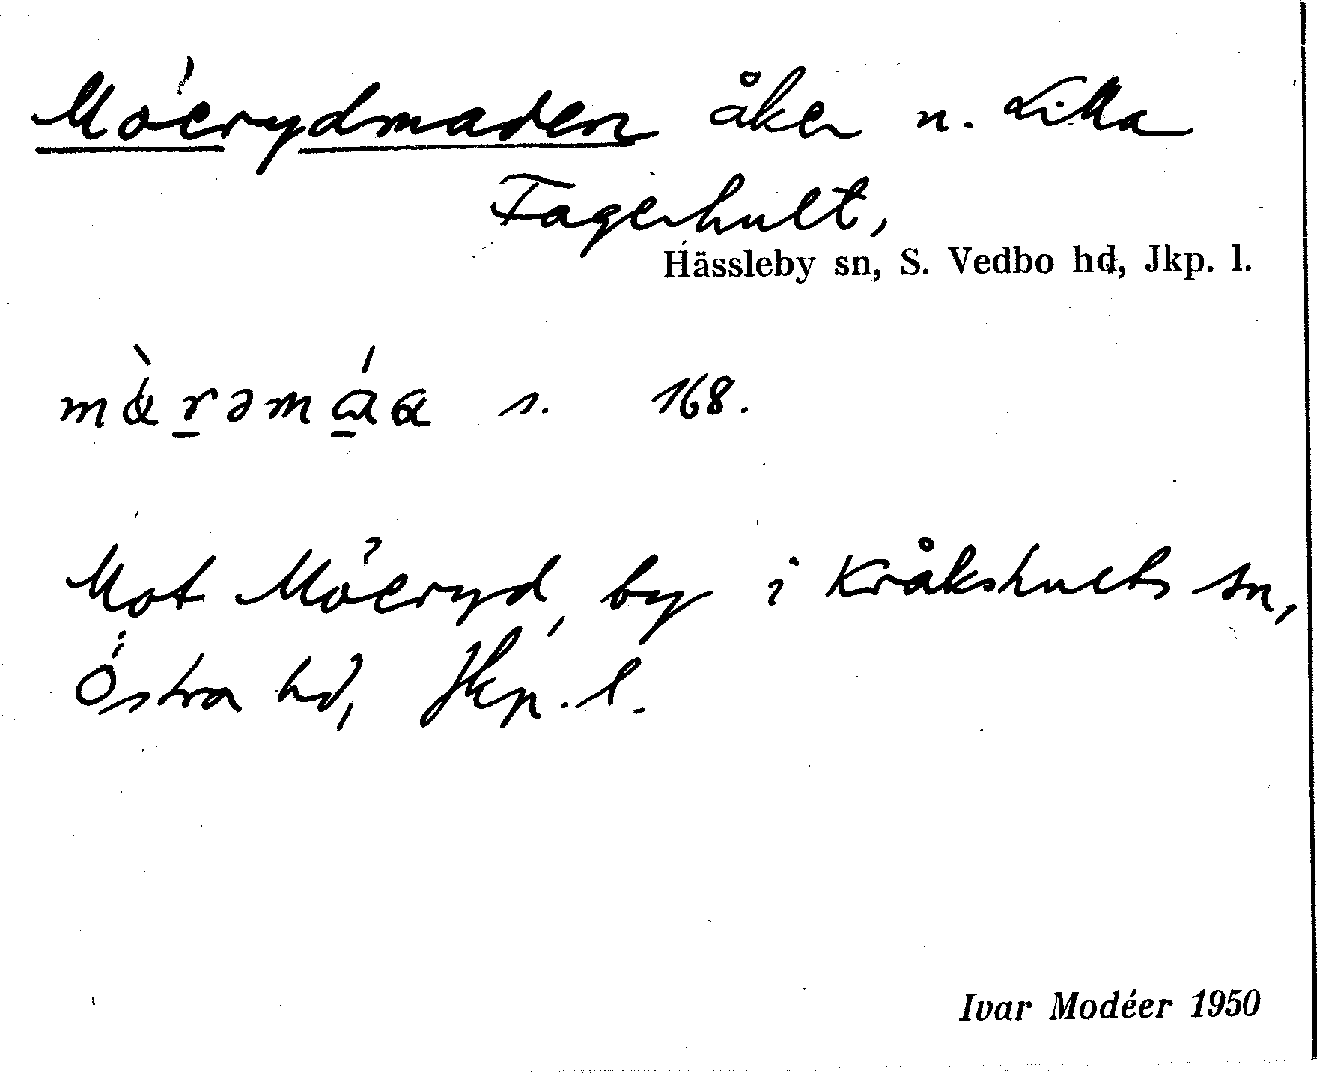 Möcrydmaden åker n. Lilla
Fagerhult,
Hässleby sn, S. Vedbo hd, Jkp. l.
1. 168.
Mot Möcryd, by i Kråkshults sn,
Östra hd, Jkp. l.
Ivar Modéer 1950